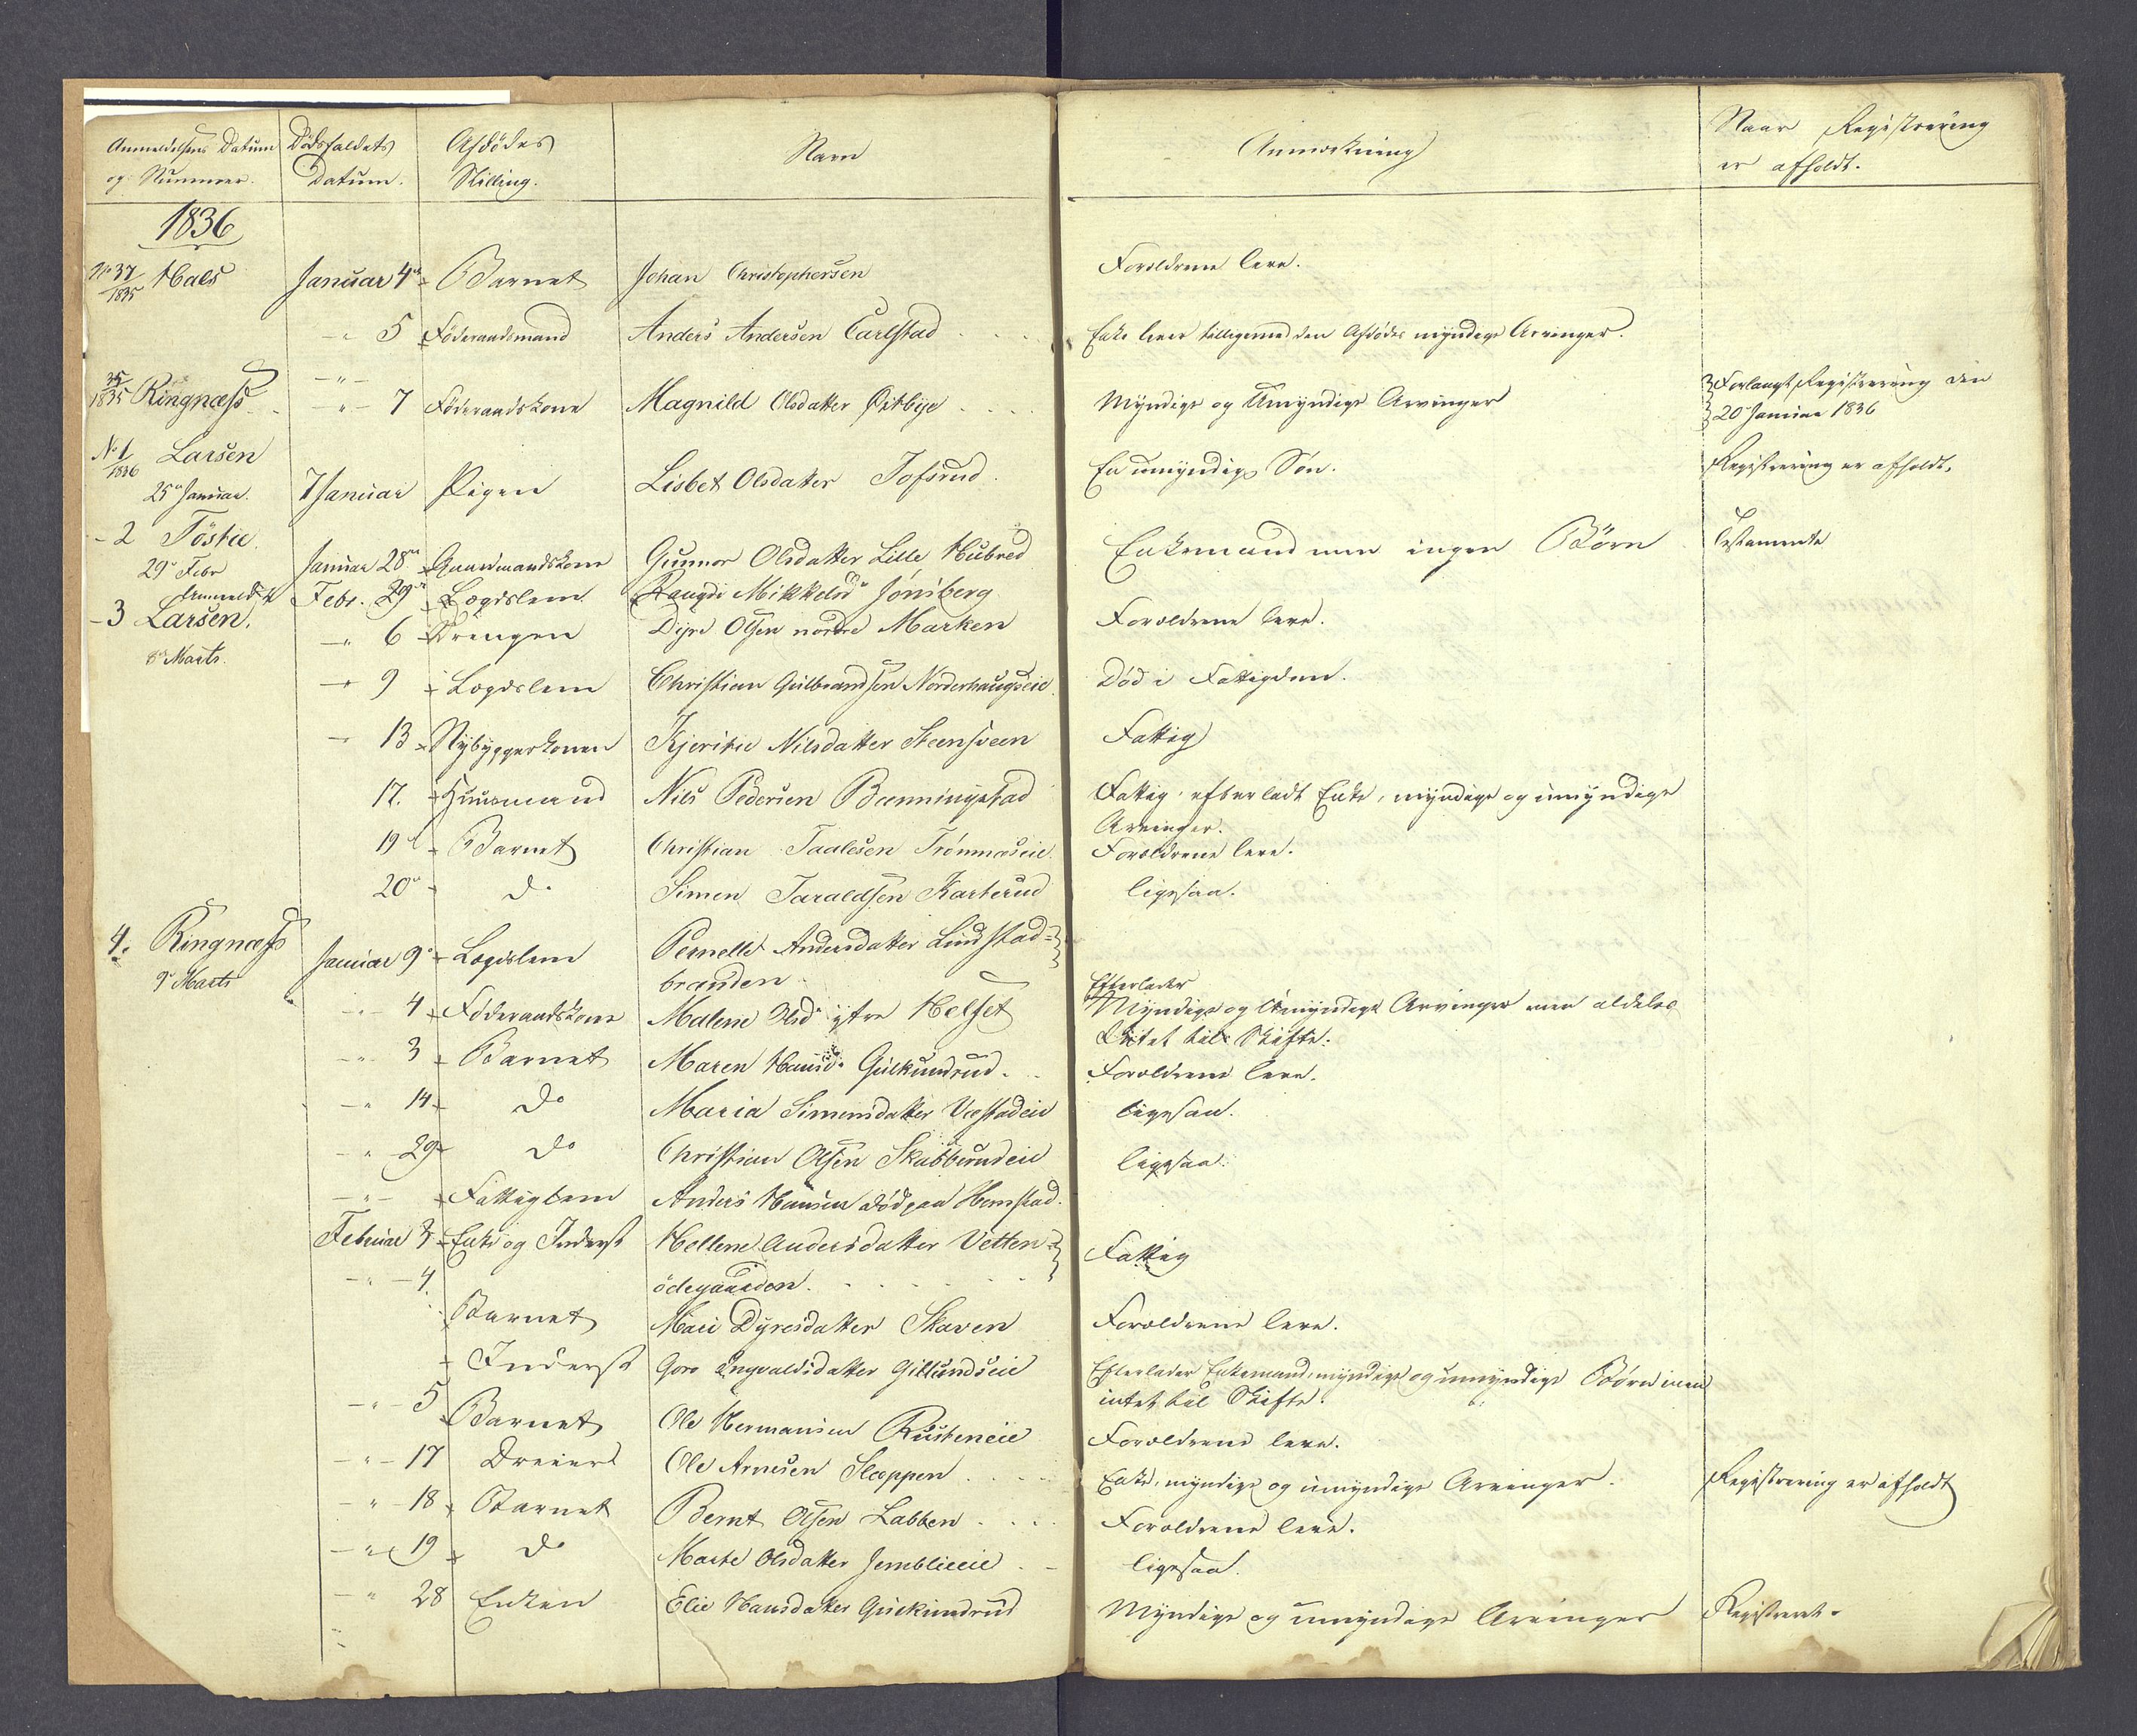 Anmeldelsens Datum og Nummer. Dödsfaldets Datum. Afdödes Stilling. Navn Anmærkning Naar Registrering er afholdt.
1836
No 37/1835 Hals Januar 4de Barnet Johan Christophersen Forældrene leve.
" 5 Föderaadsmand Anders Andersen Carlstad Enke lever tilligemed den Afdödes myndige Arvinger.
"
35/1835 Ringnæss " 7 Föderaadskone Magnild Olsdatter Östbye Myndige og Umyndige Arvinger Forlangt Registrering den 20 Januar 1836
No 1/1836 Larsen
25 Januar. 7 Januar Pigen Lisbet Olsdatter Tofsrud. En umyndig Sön. Registrering er afholdt.
- 2 Töstie.
29 Febr Januar 28 Gaardmandskone Gunnor Olsdatter Lille Hubred Enkemand men ingen Börn Testamente
Anmeldt Febr. 29 Lægdslem Rangdi Mikkelsd Jönsberg
- 3 Larsen. " 6 Drengen Dyre Olsen nordre Marken Forældrene leve.
8 Marts.
" 9 Lægdslem Christian Gulbrandsen Norderhaugseie Död i Fattigdom.
" 13 Nybyggerkonen Kjerstie Nilsdatter Steensveen Fattig
17. Huusmand Nils Pedersen Benningstad Fattig, efterladt Enke, myndige og umyndige Arvinger.
19 Barnet Christian Taalesen Trönnæseie Forældrene leve.
20 do Simen Taraldsen Karterud ligesaa.
4. Ringnæss
9 Marts Januar 9 Lægdslem Pernelle Andersdatter Lundstad-
branden.
" 4 Föderaadskone Malene Olsd ystre Helset Efterlader Myndige og Umyndige Arvinger men aldeles Intet til Skifte.
" 3 Barnet Maren Hansd. Gulkundrud. Forældrene leve.
" 14 do Maria Simensdatter Væstadeie ligesaa.
" 29 do Christian Olsen Skabberudeie ligesaa.
" Fattiglem Anders Hansen död paa Hemstad.
Februar 3 Enke og Inderst Hellene Andersdatter Vetten-
ödegaarden. Fattig
" 4. Barnet Mari Dyresdatter Skaven Forældrene leve.
Inderst Goro Engvaldsdatter Gillundseie Efterlader Enkemand, myndige og umyndige Börn men intet til Skifte.
" 5 Barnet Ole Hermansen Rusteneie Forældrene leve.
" 17 Dreier Ole Arnesen Slæppen Enke, myndige og umyndige Arvinger. Registrering er afholdt
" 18 Barnet Bernt Olsen Labben Forældrene leve.
" 19 do Marte Olsdatter Jemblieeie ligesaa.
" 28 Enken Elie Hansdatter Gukundrud Myndige og umyndige Arvinger Registreret.